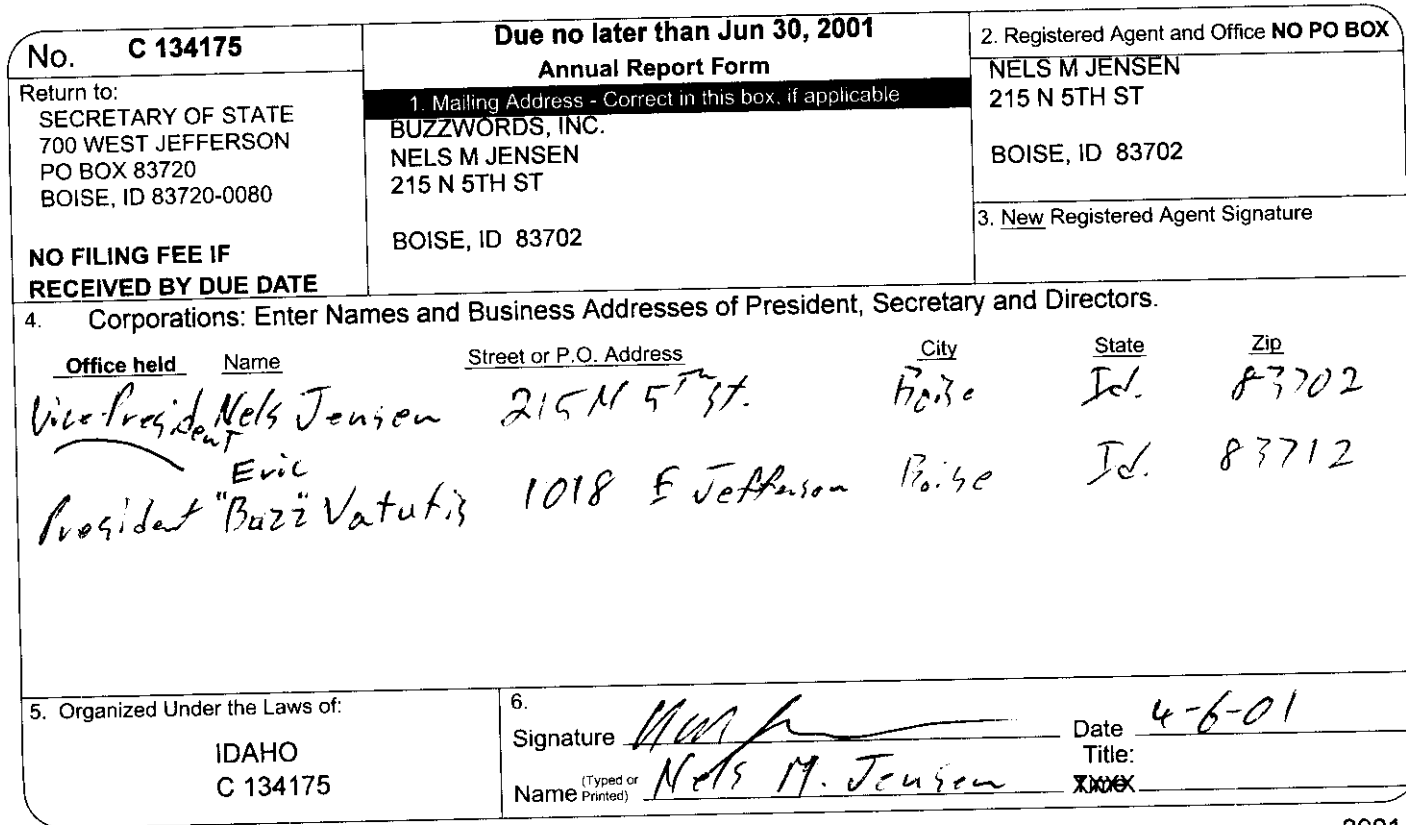 No. C 134175
Return to:
SECRETARY OF STATE
700 WEST JEFFERSON
PO BOX 83720
BOISE, ID 83720-0080
NO FILING FEE IF
RECEIVED BY DUE DATE
Due no later than Jun 30, 2001
Annual Report Form
1. Mailing Address - Correct in this box, if applicable
BUZZWORDS, INC.
NELS M JENSEN
215 N 5TH ST
BOISE, ID 83702
2. Registered Agent and Office NO PO BOX
NELS M JENSEN
215 N 5TH ST
BOISE, ID 83702
3. New Registered Agent Signature
4. Corporations: Enter Names and Business Addresses of President, Secretary and Directors.
Office held Name Street or P.O. Address City State Zip
Vice-President Nels Jensen 215 N 5th St. Boise Id. 83702
Eric
President "Buzz" Vatutis 1018 E Jefferson Boise Id. 83712
5. Organized Under the Laws of:
IDAHO
C 134175
6.
Signature Date 4-6-01
Title:
Name (Typed or Printed) Nels M. Jensen